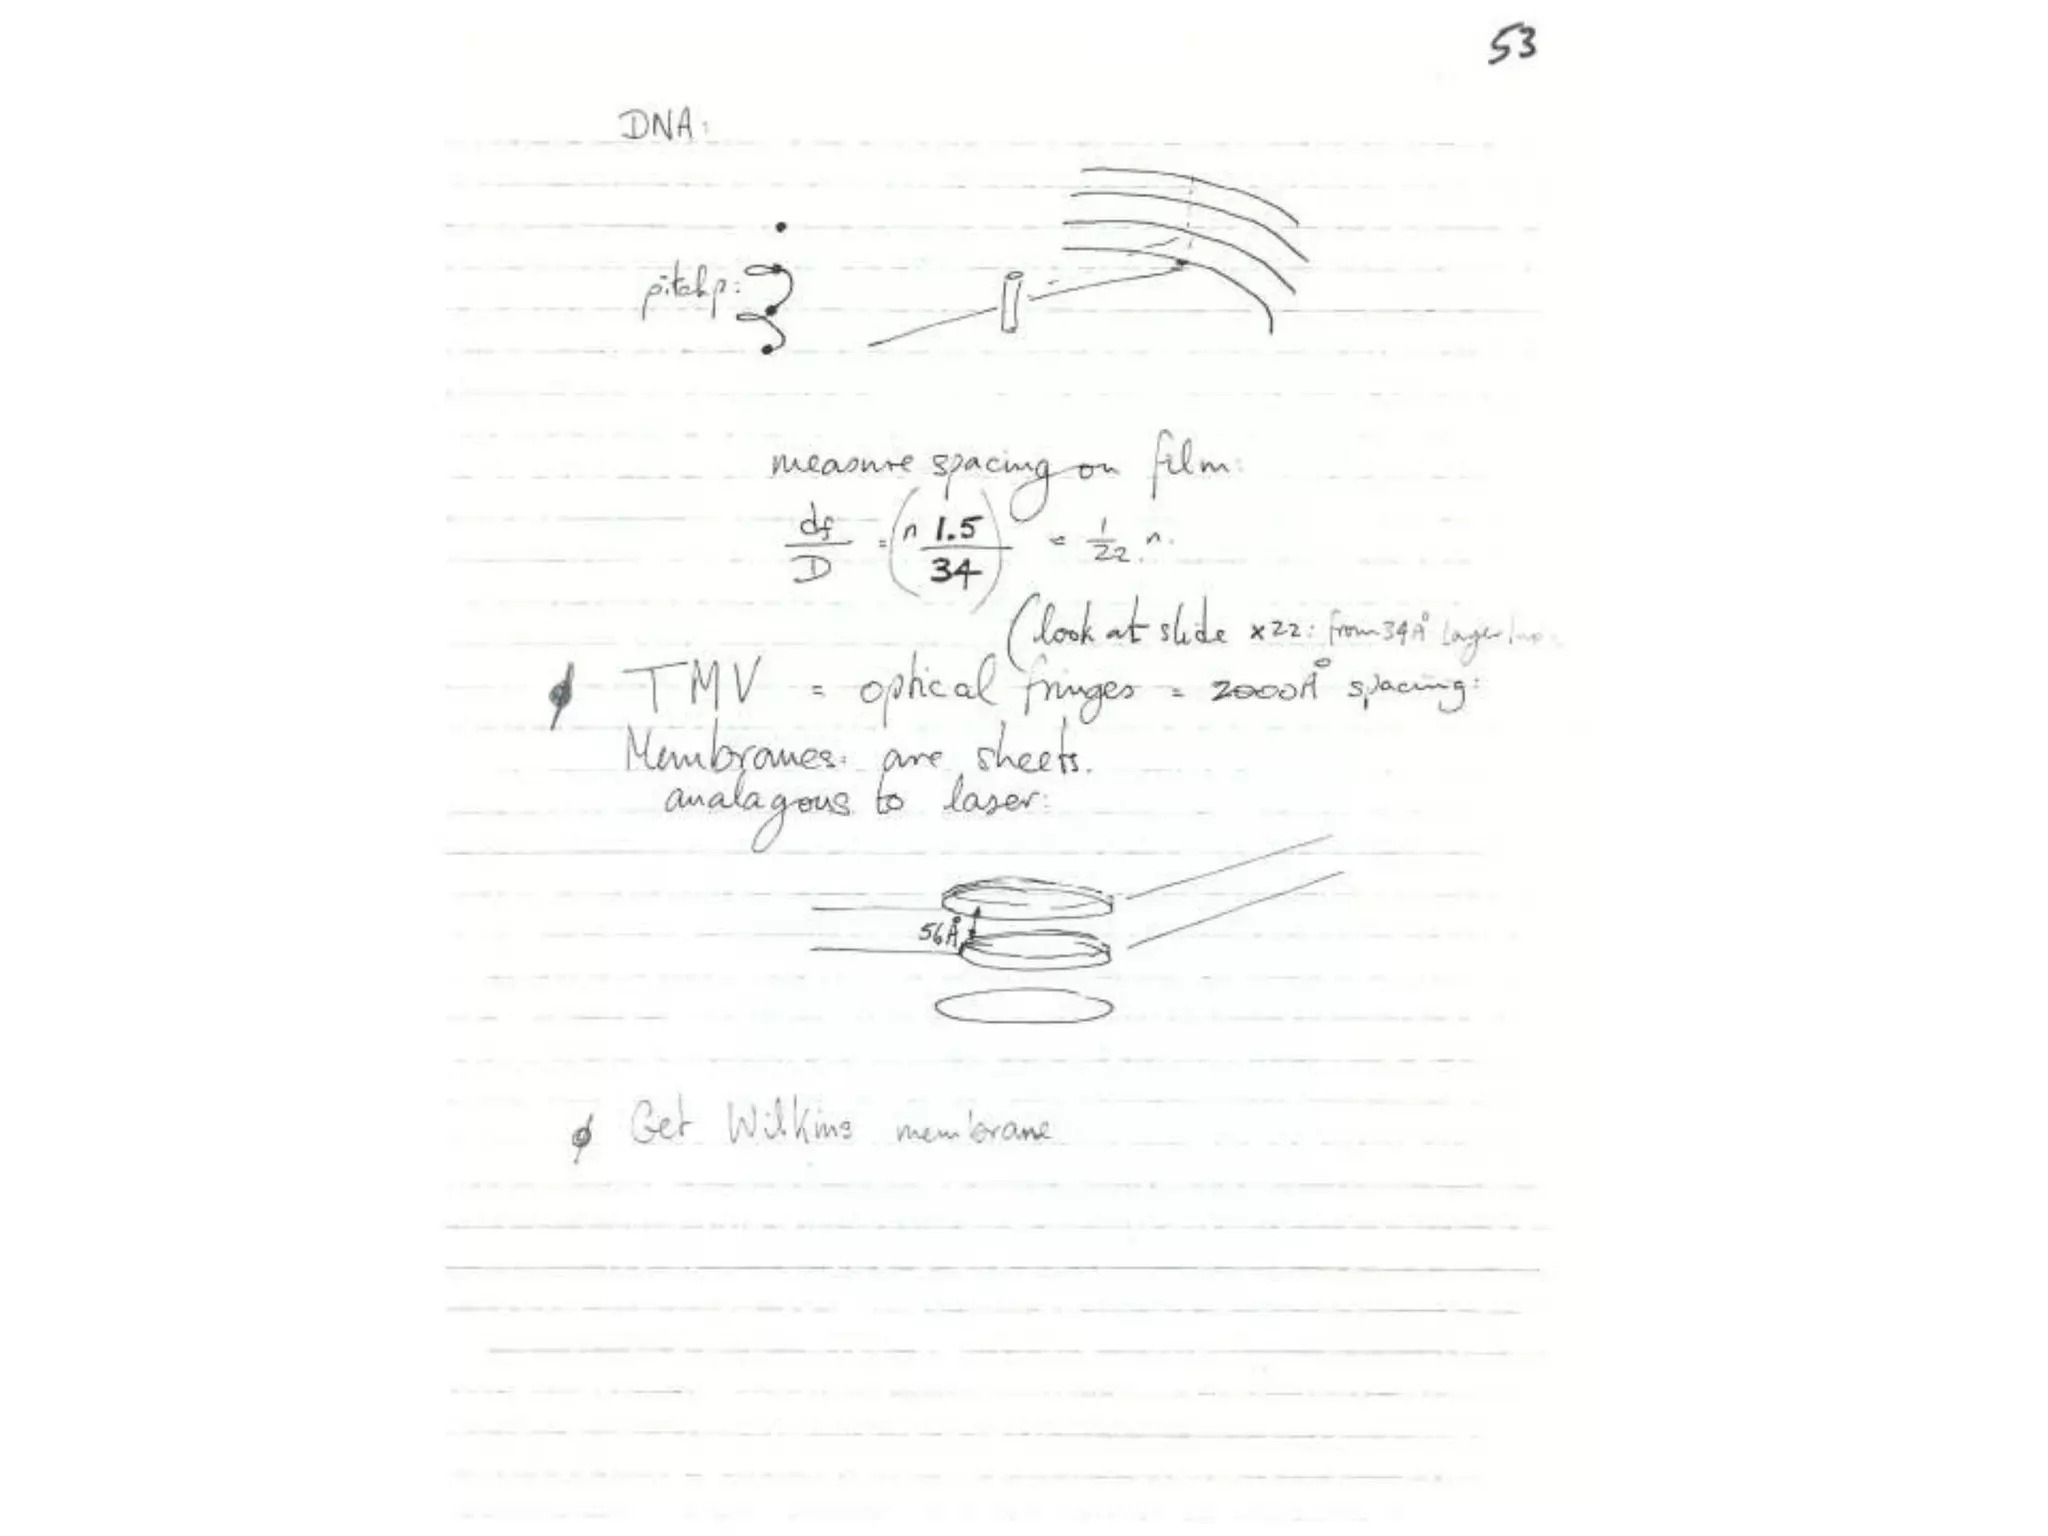 53
DNA:
pitch p:
measure spacing on film:
df/D = (n 1.5/34) = 1/22 n.
(look at slide x22: from 34Å layer
TMV = optical fringes = 2000Å spacing:
Membranes: are sheets.
analagous to laser:
56Å
Get Wilkins membrane